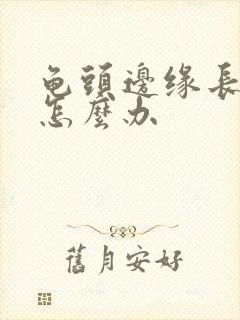 龟頭邊缘長
怎麼办
舊月安好